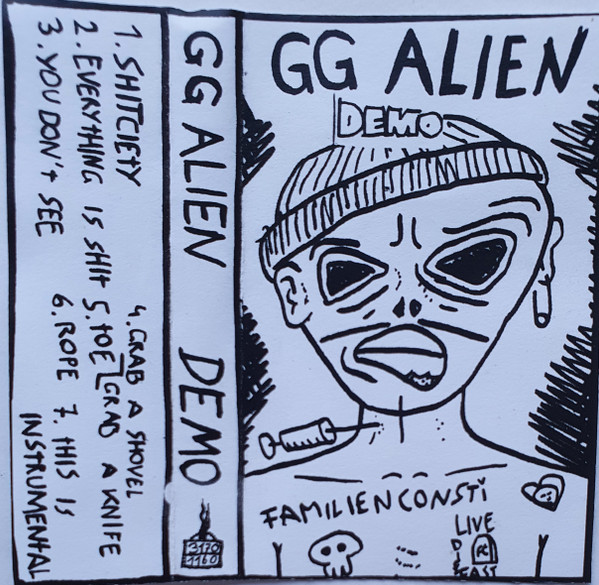 1. SHITCIETY
2. EVERYTHING IS SHIT
3. YOU DON't SEE
4. GRAB A SHOVEL
5. tOE
GRAB A KNIFE
6. ROPE 7. tHIS IS
INSTRUMENTAL
GG ALIEN DEMO
3170
1160
GG ALIEN
DEMO
FAMILIENCONSTi
LIVE